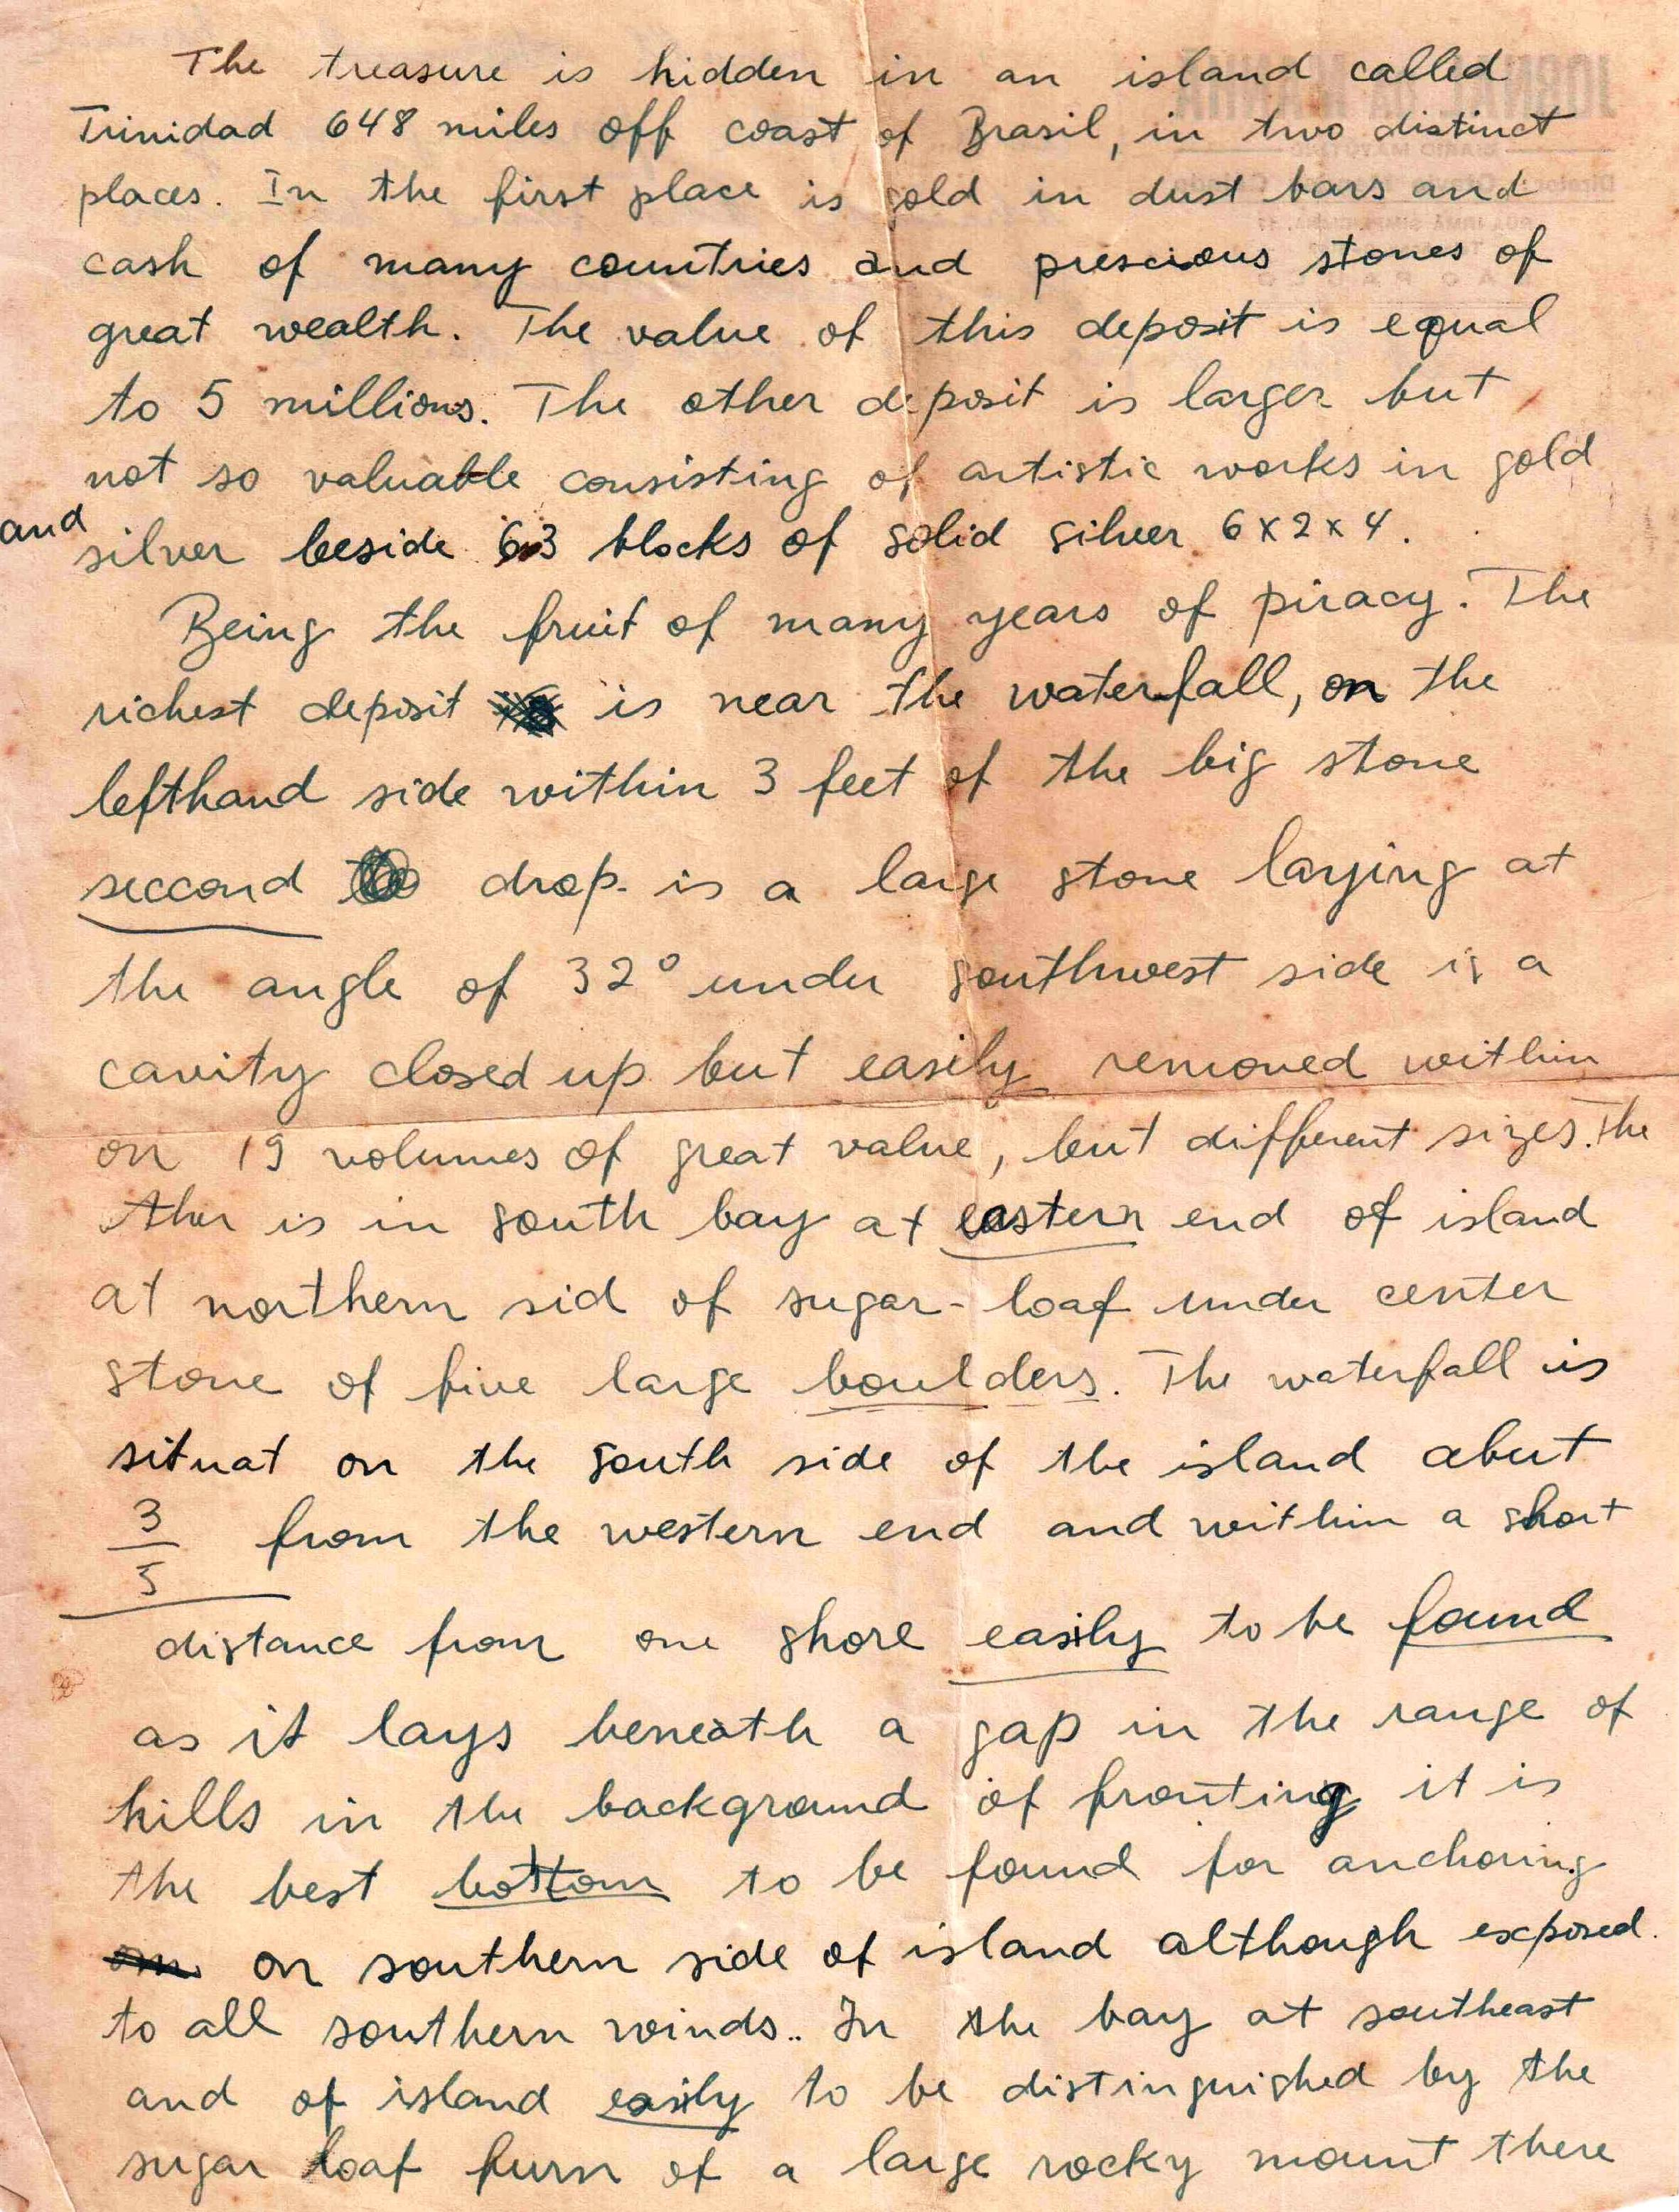 The treasure is hidden in an island called
Trinidad 648 miles off coast of Brasil, in two distinct
places. In the first place is gold in dust bars and
cash of many countries and prescious stones of
great wealth. The value of this deposit is equal
to 5 millions. The other deposit is larger but
not so valuable consisting of artistic works in gold
and silver beside 63 blocks of solid silver 6x2x4.
Being the fruit of many years of piracy. The
richest deposit is near the waterfall, on the
lefthand side within 3 feet of the big stone
seccond drop. is a large stone laying at
the angle of 32° under southwest side is a
cavity closed up but easily removed within
on 19 volumes of great value, but different sizes. The
ther is in south bay at eastern end of island
at northern sid of sugar-loaf under center
stone of five large boulders. The waterfall is
situat on the south side of the island abut
3/5 from the western end and within a short
distance from one shore easily to be found
as it lays beneath a gap in the range of
hills in the background of fronting it is
the best bottom to be found for anchoring
on southern side of island although exposed.
to all southern winds.. In the bay at southeast
and of island easily to be distinguished by the
sugar loaf furn of a large rocky mount there